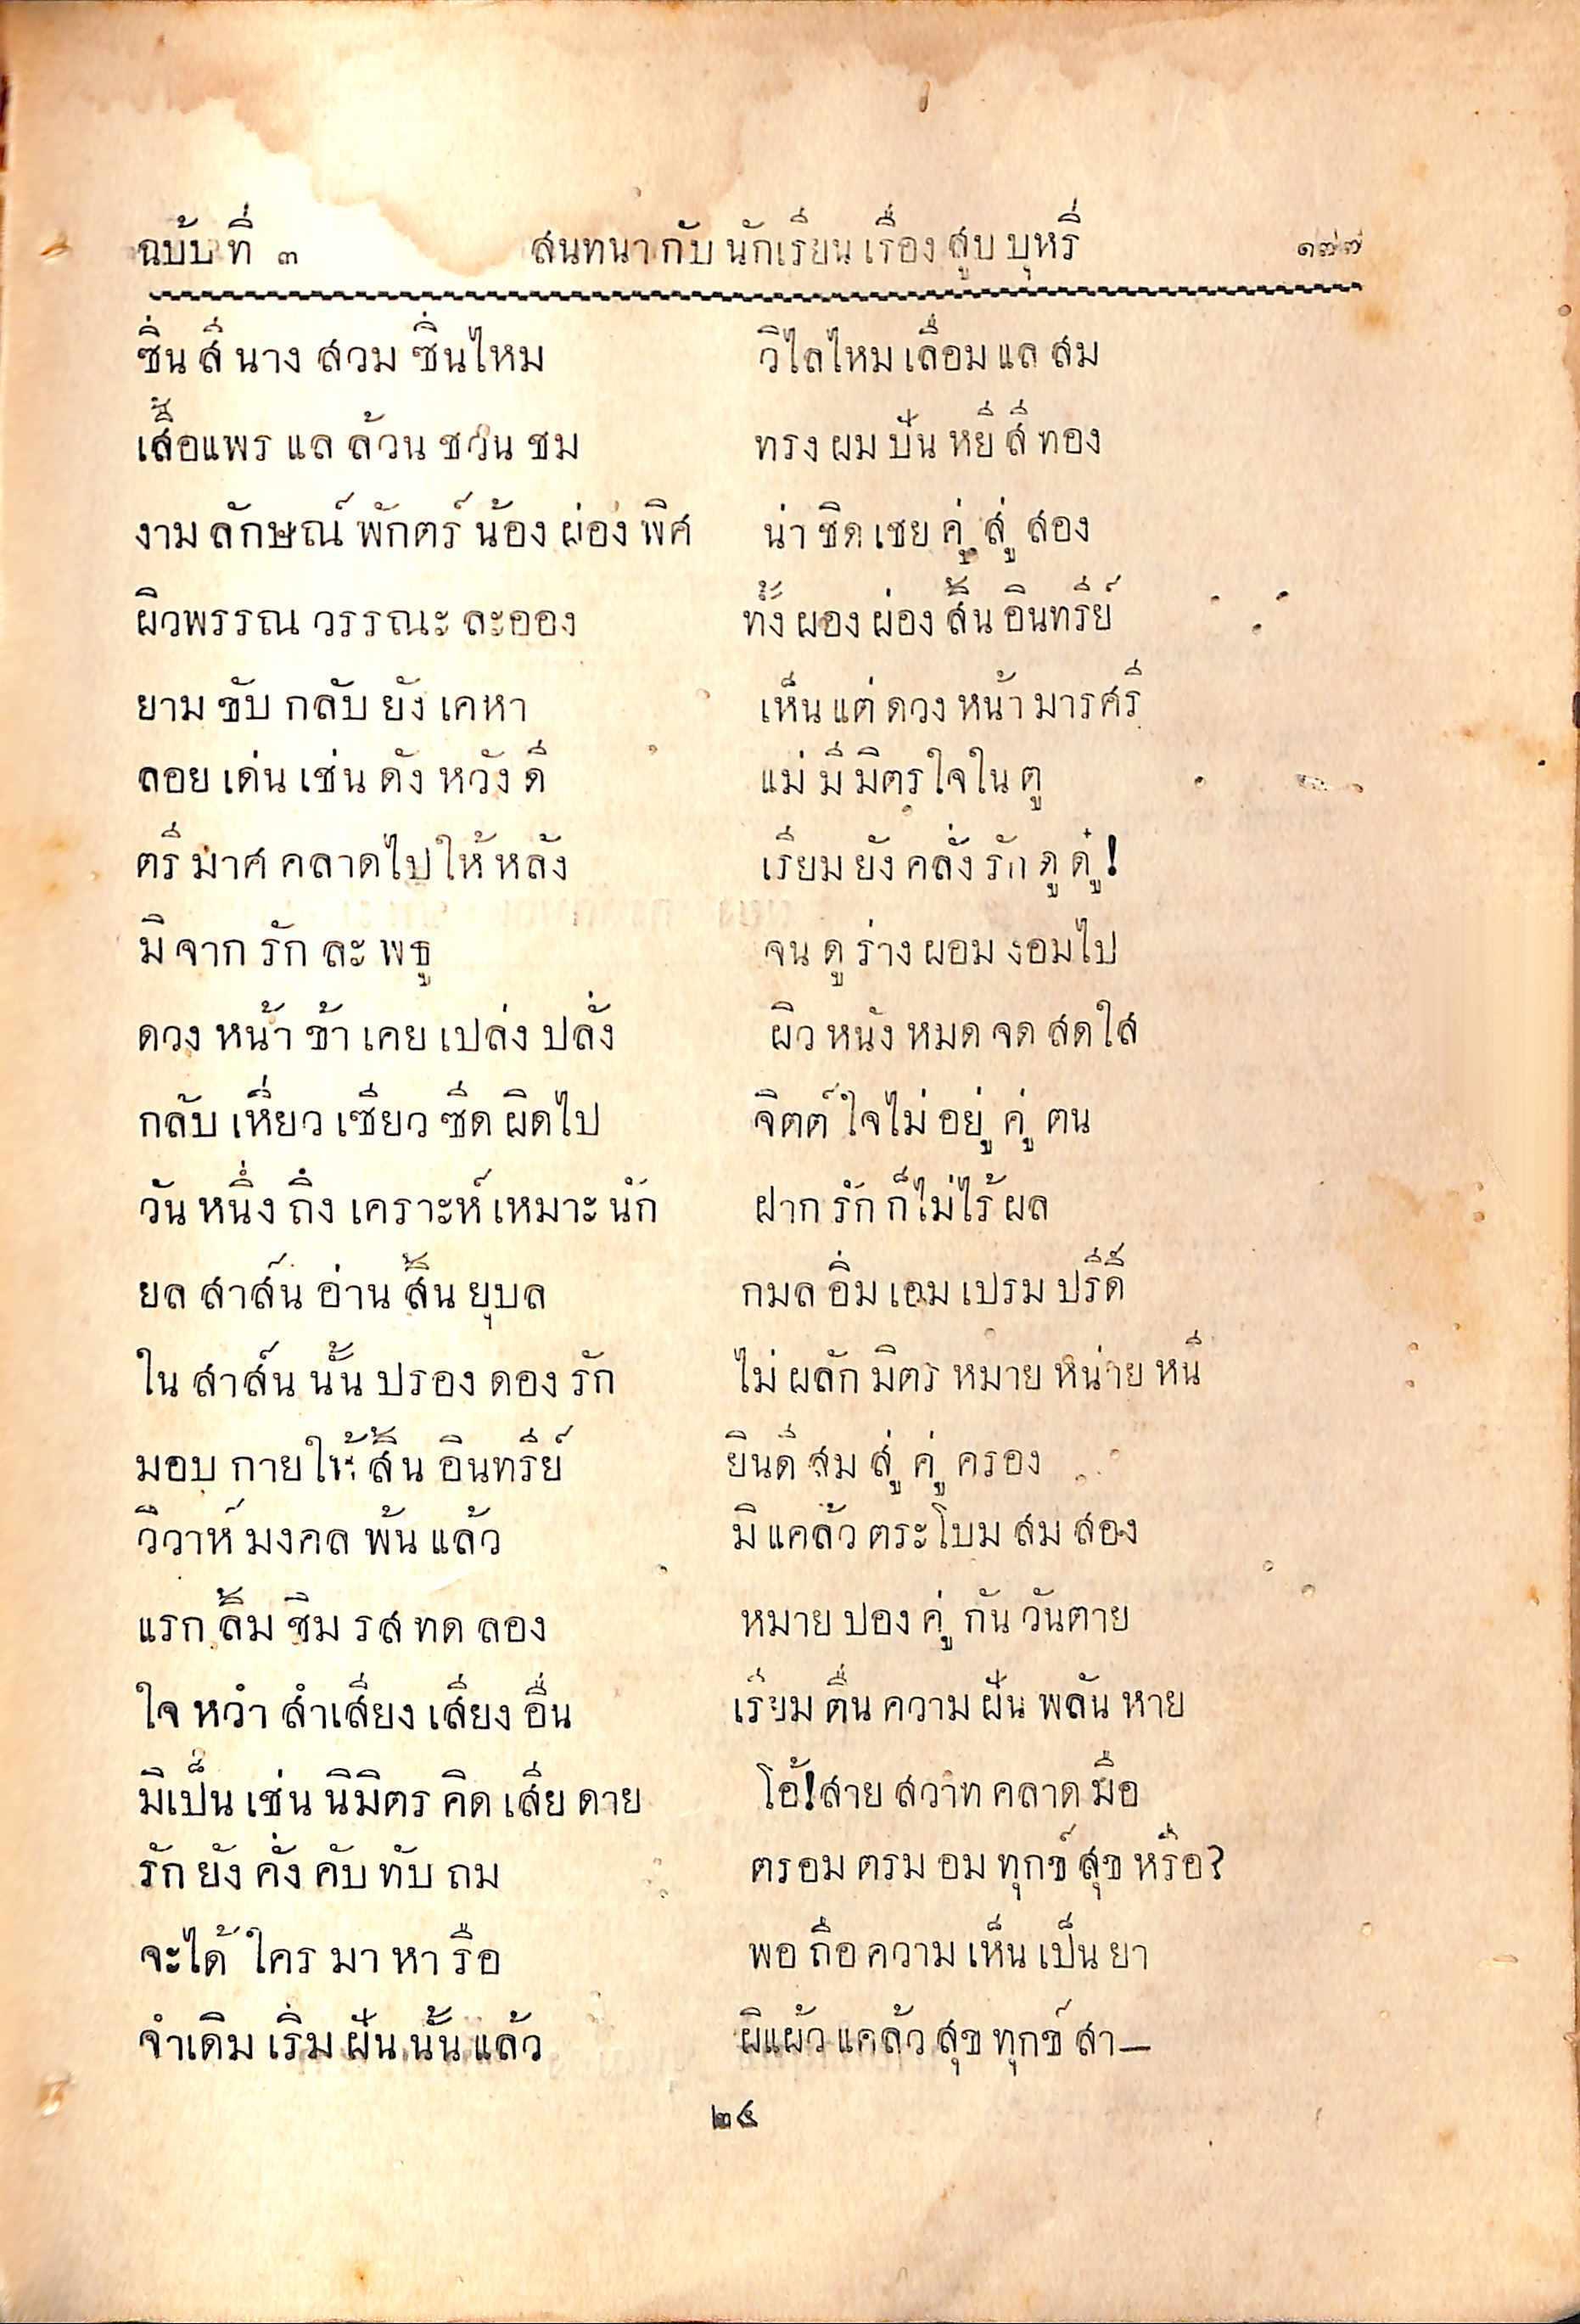 ฉบับ ที่ ๓ สนทนา กับ นักเรียน เรื่อง สูบ บุหรี่ ๑๗๗
ซิ่น สี นาง สวม ซิ่นไหม วิไลไหม เลื่อม แล สม
เสื้อแพร แล ล้วน ชวน ชม ทรง ผม ปัน หยี สี ทอง
งาม ลักษณ์ พักตร์ น้อง ผ่อง พิศ น่า ชิด เชย คู่ สู่ สอง
ผิวพรรณ วรรณะ ละออง ทั้ง ผอง ผ่อง สิ้น อินทรีย์
ยาม ขับ กลับ ยัง เคหา เห็น แต่ ดวง หน้า มารศรี
ลอย เด่น เช่น ดัง หวัง ดี แม่ มี มิตร ใจ ใน ตู
ตรี มาศ คลาดไป ให้ หลัง เรียม ยัง คลั่ง รัก ดู ดู๋ !
มิ จาก รัก ละ พธู จน ดู ร่าง ผอม งอมไป
ดวง หน้า ข้า เคย เปล่ง ปลั่ง ผิว หนัง หมด จด สดใส
กลับ เหี่ยว เซียว ซีด ผิดไป จิตต์ ใจไม่ อยู่ คู่ ตน
วัน หนึ่ง ถึง เคราะห์ เหมาะ นัก ฝาก รัก ก็ไม่ไร้ ผล
ยล สาส์น อ่าน สิ้น ยุบล กมล อิ่ม เอม เปรม ปรีดี์
ใน สาส์น นั้น ปรอง ดอง รัก ไม่ ผลัก มิตร หมาย หน่าย หนี
มอบ กายให้ สิ้น อินทรีย์ ยินดี สม สู่ คู่ ครอง
วิวาห์ มงคล พ้น แล้ว มิ แคล้ว ตระโบม สม สอง
แรก ลิ้ม ชิม รส ทด ลอง หมาย ปอง คู่ กัน วันตาย
ใจ หวำ สำเสียง เสียง อื่น เรียม ตื่น ความ ฝัน พลัน หาย
มิเป็น เช่น นิมิตร คิด เสีย ดาย โอ้!สาย สวาท คลาด มือ
รัก ยัง คั่ง คับ ทับ ถม ตรอม ตรม อม ทุกข์ สุข หรือ?
จะได้ ใคร มา หา รือ พอ ถือ ความ เห็น เป็น ยา
จำเดิม เริ่ม ฝัน นั้น แล้ว ผิแผ้ว แคล้ว สุข ทุกข์ สา—